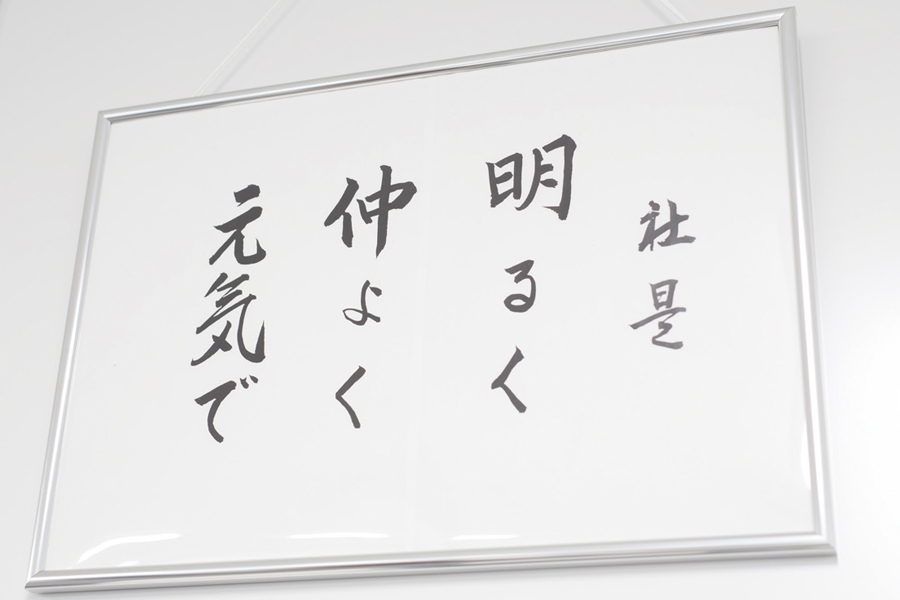 社是
明るく
仲よく
元気で